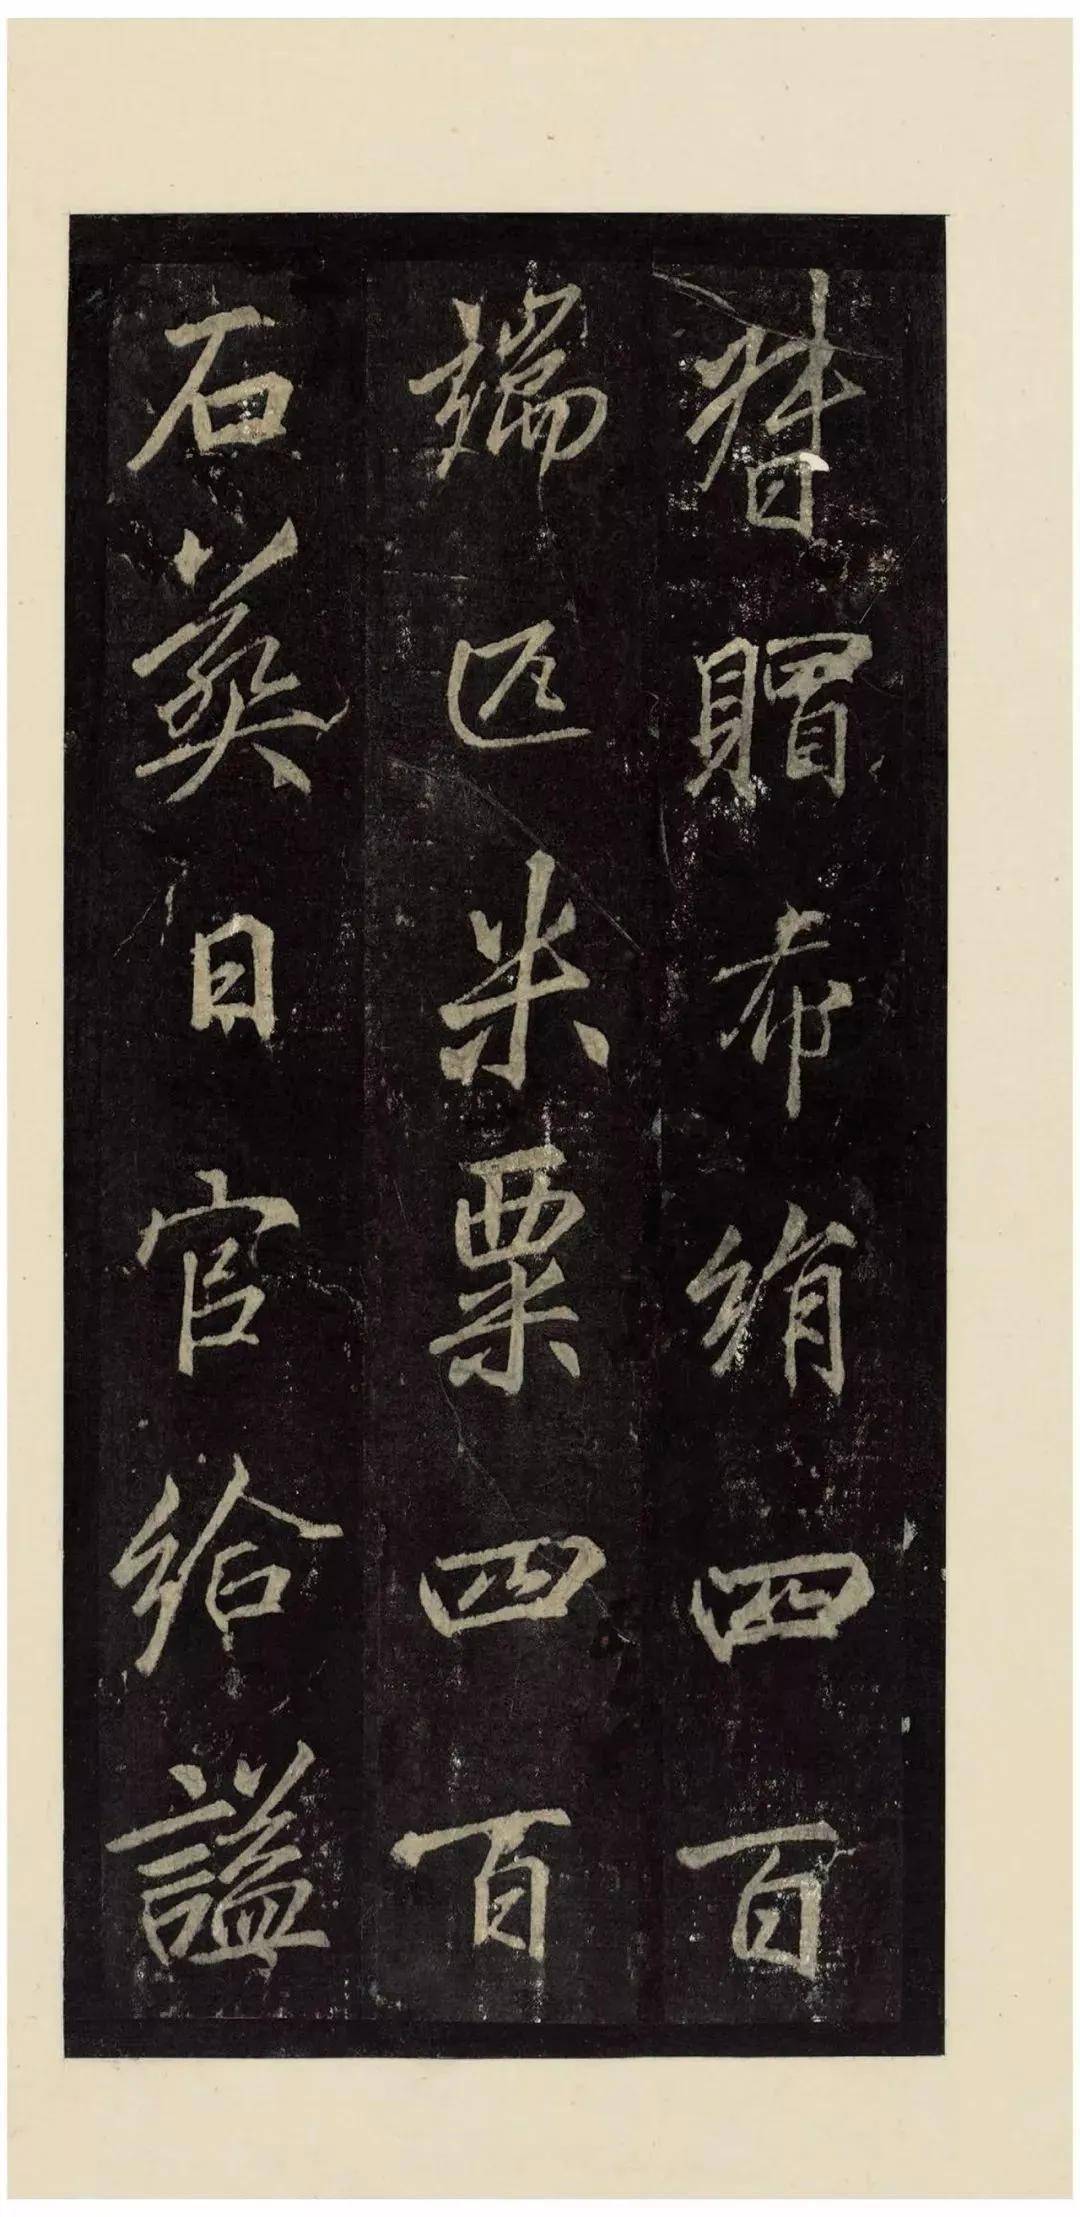 督賵布絹四百
端匹米粟四百
石葬日官給謚